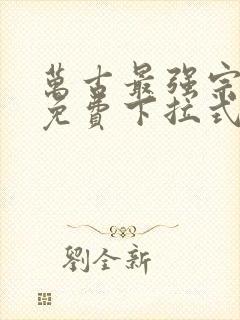 萬古最强宗
免費下拉式
劉全新